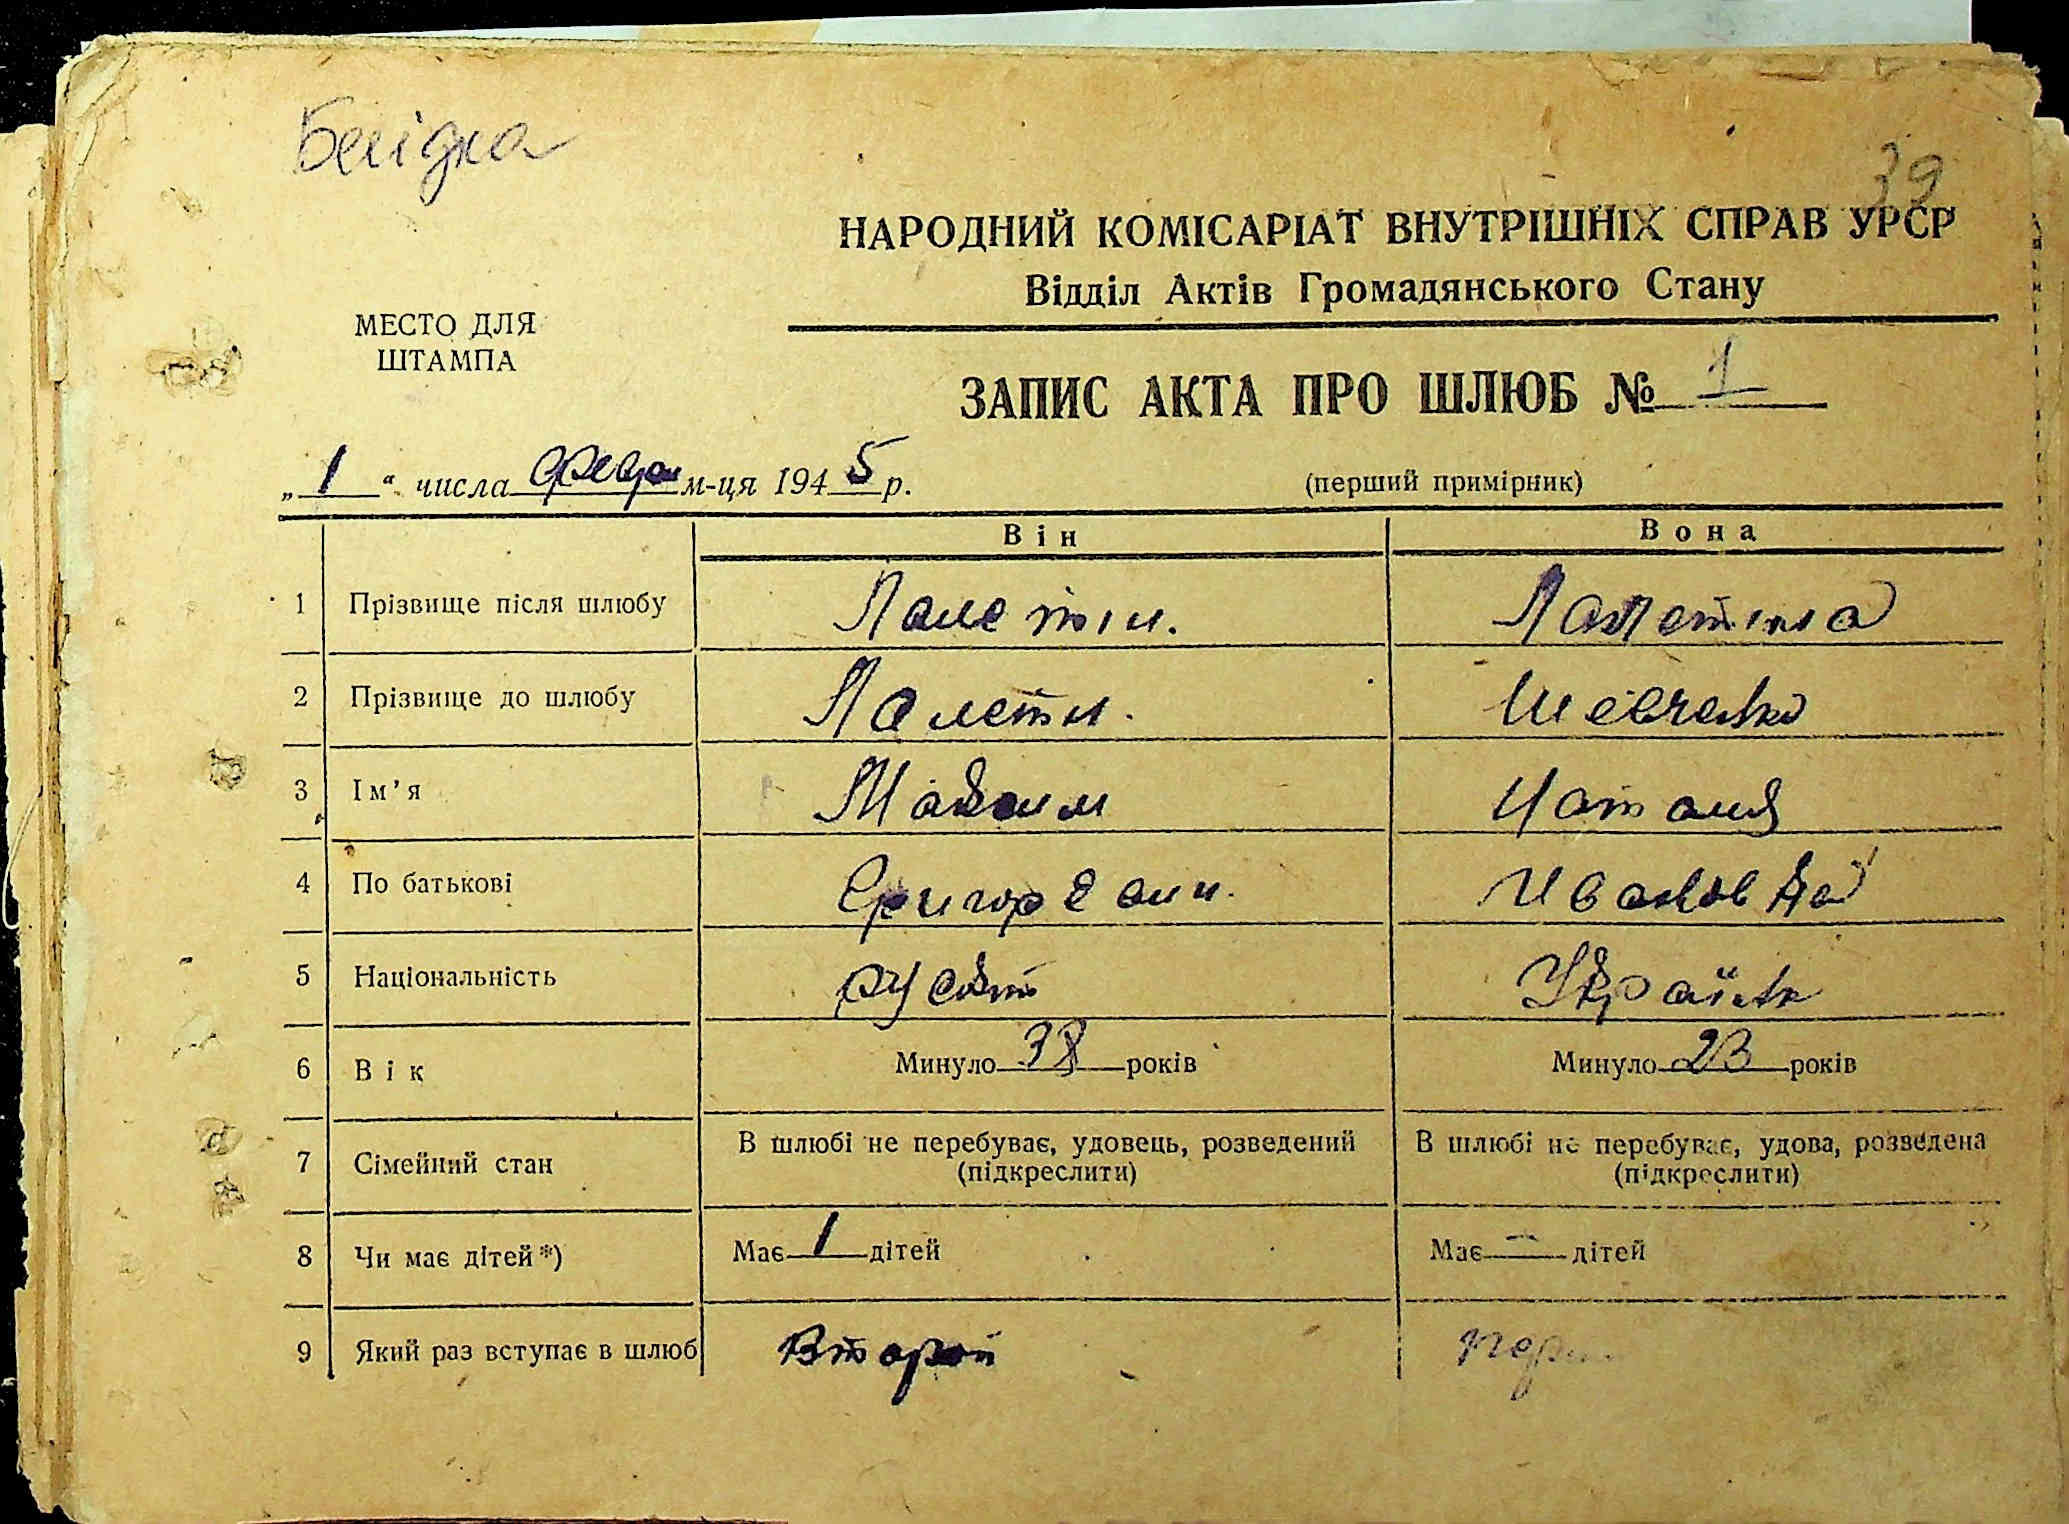 39
НАРОДНИЙ КОМІСАРІАТ ВНУТРІШНІХ СПРАВ УРСР
Відділ Актів Громадянського Стану
МЕСТО ДЛЯ
ШТАМПА
ЗАПИС АКТА ПРО ШЛЮБ № 1
„1“ числа февр м-ця 1945 р.
(перший примірник)
Він Вона
1 Прізвище після шлюбу
2 Прізвище до шлюбу Шевченко
3 Ім’я Максим Наталя
4 По батькові
5 Національність
6 Вік Минуло 38 років Минуло 23 років
7 Сімейний стан В шлюбі не перебуває, удовець, розведений В шлюбі не перебуває, удова, розведена
(підкреслити) (підкреслити)
8 Чи має дітей*) Має 1 дітей Має - дітей
9 Який раз вступає в шлюб Второй